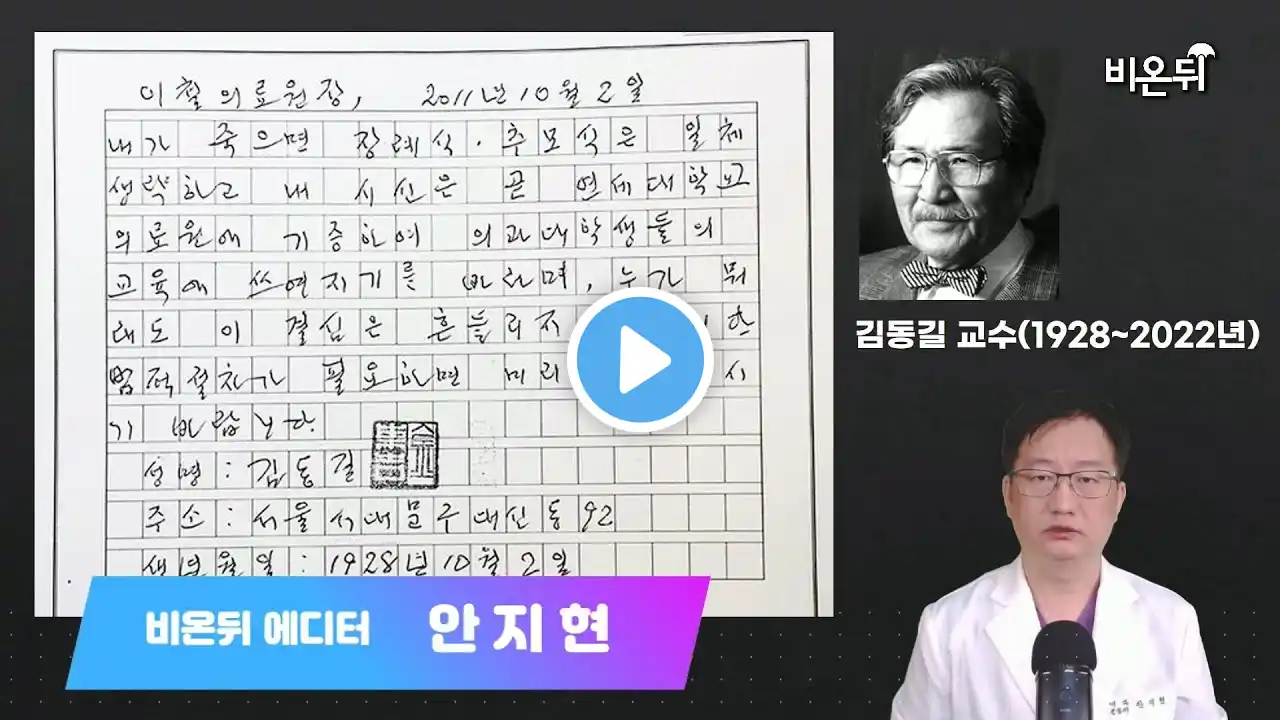 이 철 의료원장, 2011년 10월 2일
내가 죽으면 장례식·추모식은 일체
생략하고 내 시신은 곧 연세대학교
의료원에 기증하여 의과대학생들의
교육에 쓰여지기를 바라며, 누가 뭐
래도 이 결심은 흔들리지
법적절차가 필요하면 미리 시
기 바랍니다.
성명 : 김동길
주소 : 서울 서대문구 대신동 92
생년월일 : 1928년 10월 2일
비온뒤
김동길 교수(1928~2022년)
비온뒤 에디터 안지현
안지현